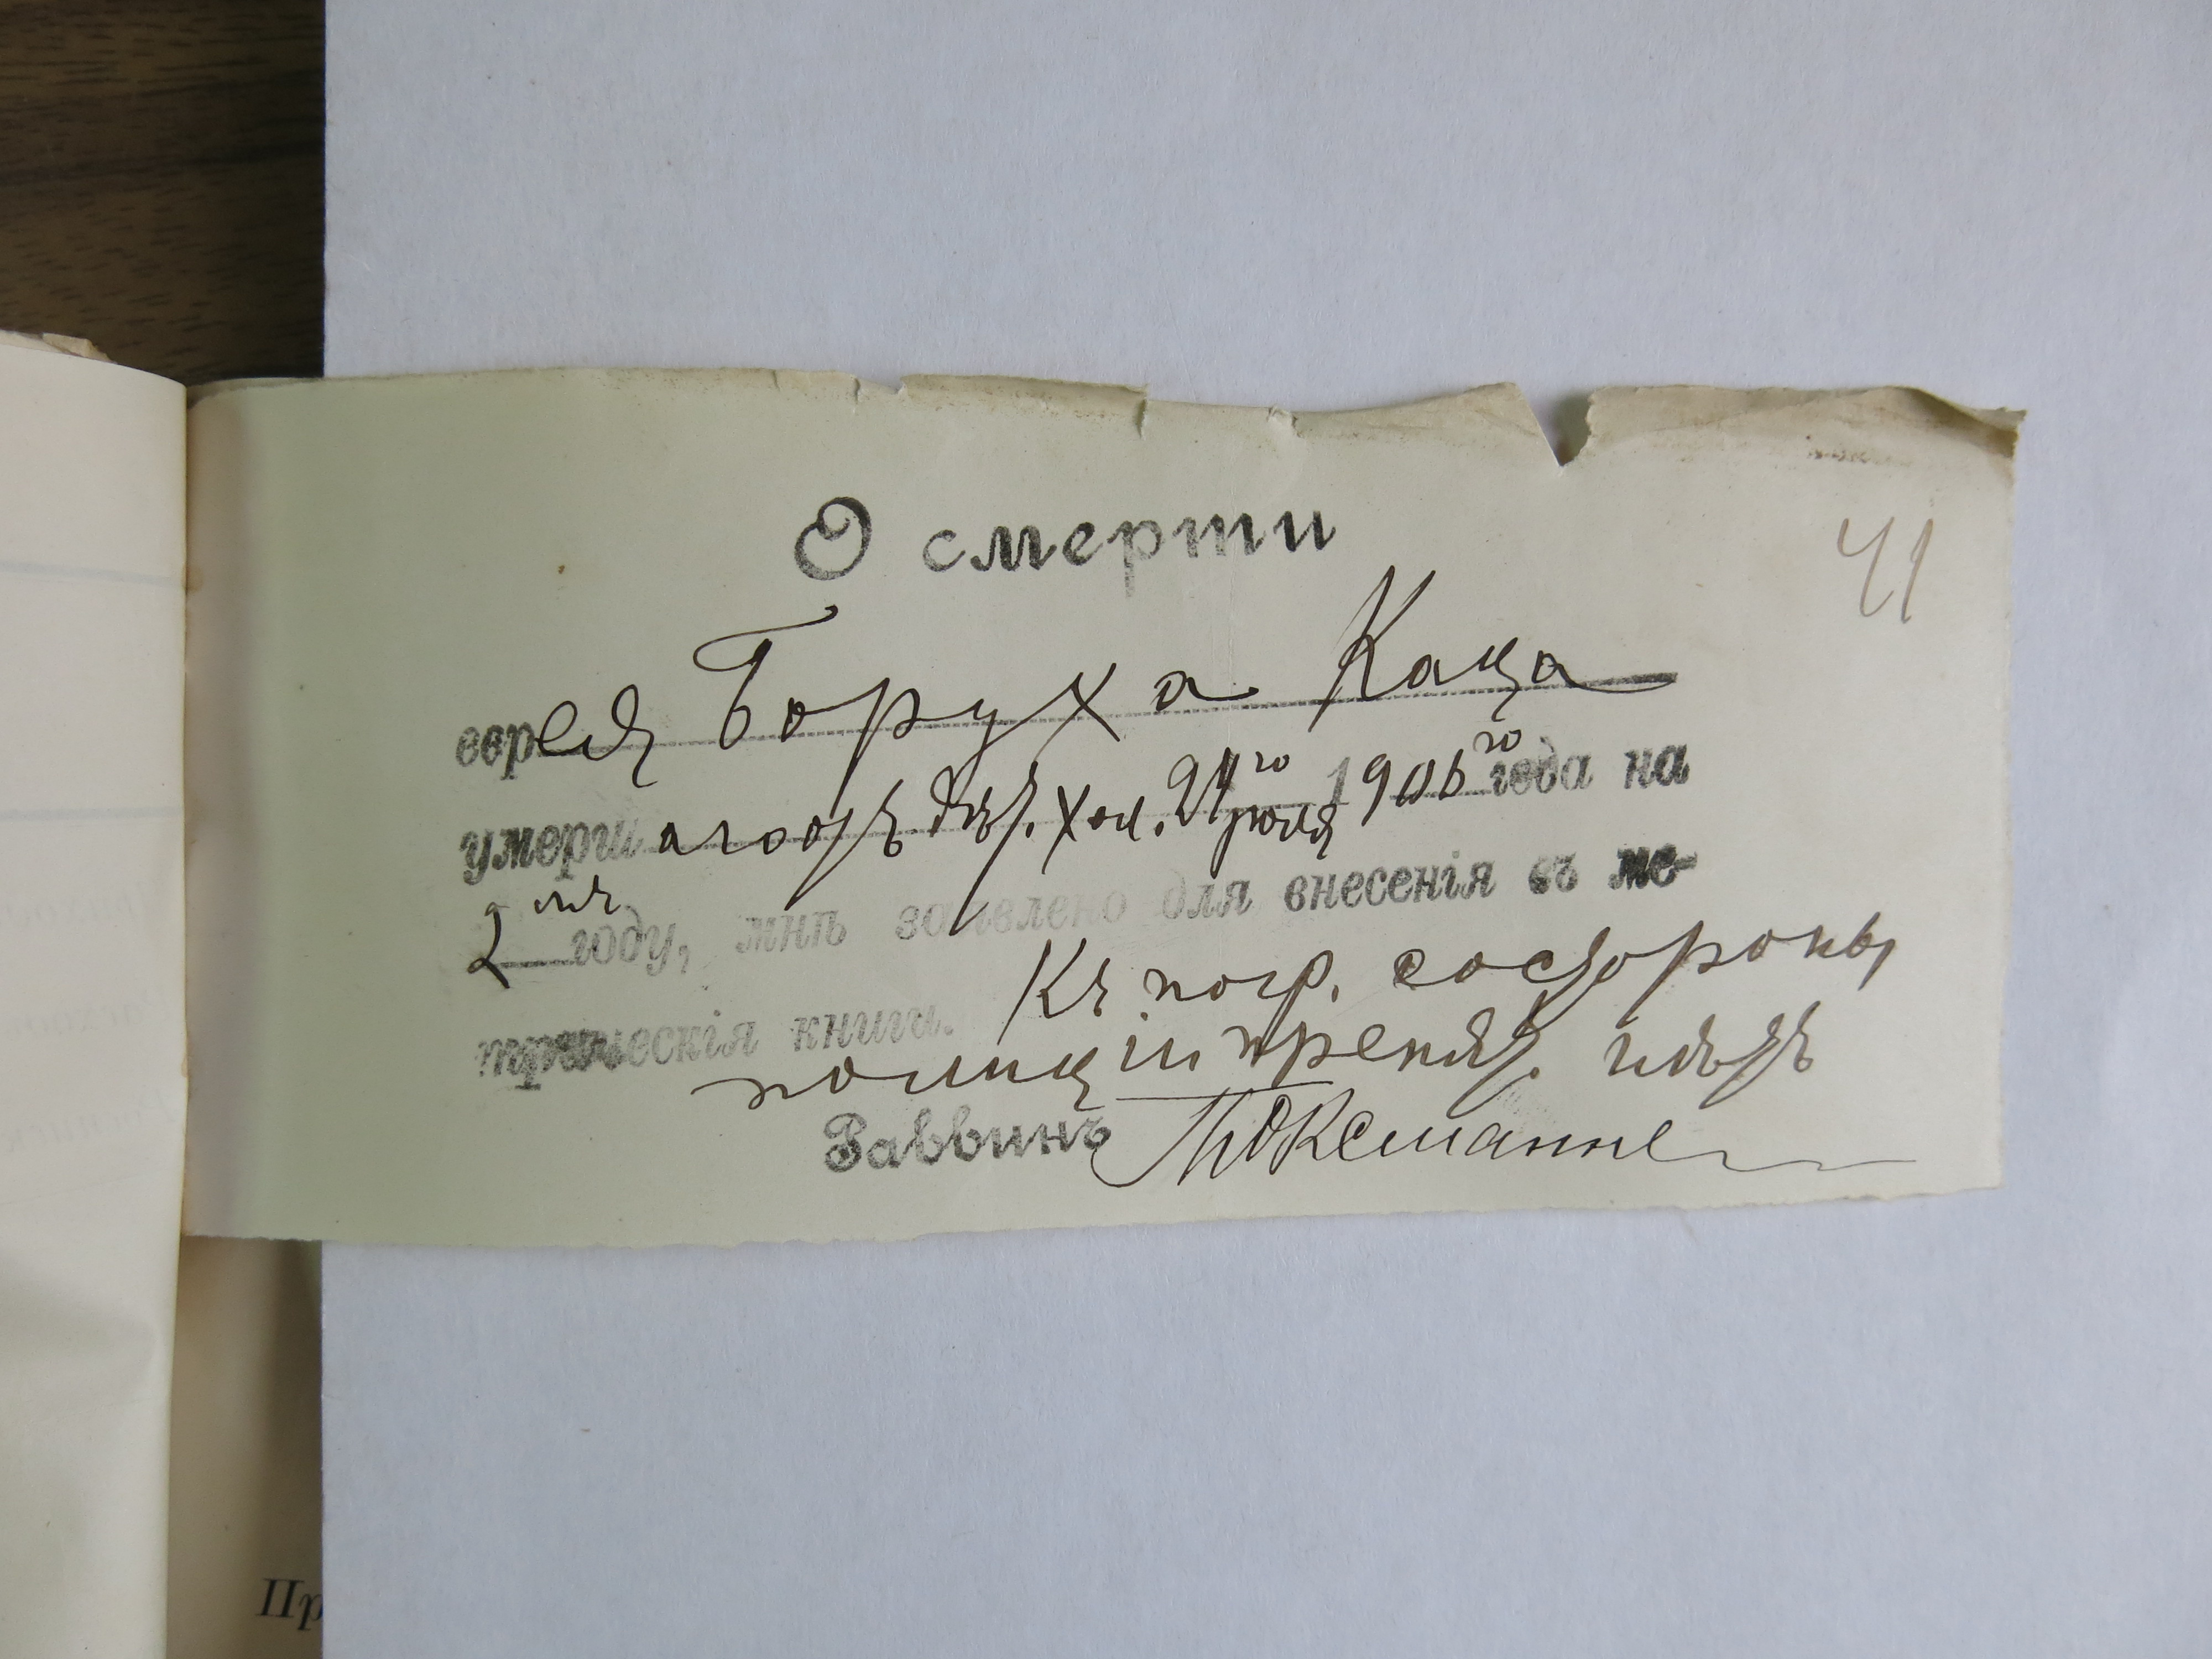 О смерти
41
еврея Боруха Каца
умершаго отъ дѣт. хол. 24го іюля 1906го года на
2мъ году, мнѣ заявлено для внесенія въ ме-
трическія книги. Къ погр. состороны
полиціи препят. нѣтъ
Раввинъ
Пр